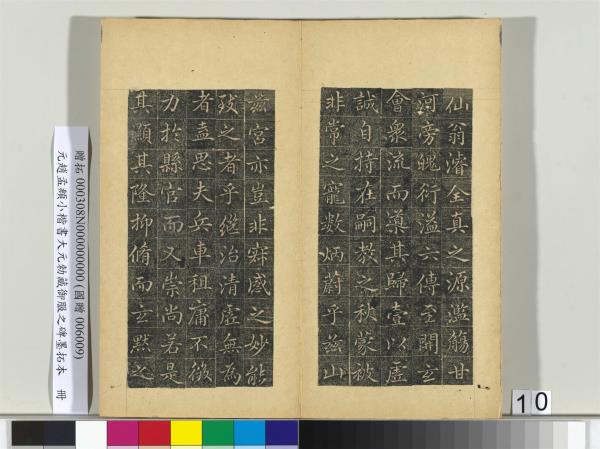 仙翁濬全真之源濫觴甘
河旁魄衍溢六傳至開玄
會衆流而導其歸壹以虛
誠自持在嗣教之秋蒙被
非常之寵數炳蔚乎茲山
茲宮亦豈非冥感之妙能
致之者乎繼治清虛無為
者蓋思夫兵車租庸不徭
力於縣官而又崇尚若是
其顯其隆抑脩而玄默之
贈拓 000308N000000000 (國贈 006009)
元趙孟頫小楷書大元勅藏御服之碑墨拓本 冊
10